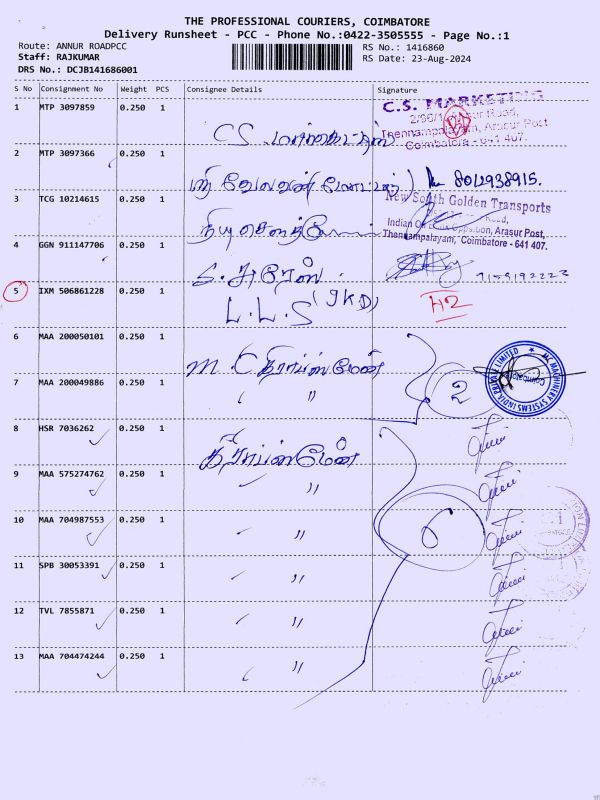 THE PROFESSIONAL COURIERS, COIMBATORE
Delivery Runsheet - PCC - Phone No.:0422-3505555 - Page No.:1
Route: ANNUR ROADPCC
Staff: RAJKUMAR
DRS No.: DCJB141686001
RS No.: 1416860
RS Date: 23-Aug-2024
S No Consignment No Weight PCS Consignee Details Signature
1 MTP 3097859 0.250 1
C.S. மார்கெட்டிங்
C.S. MARKETING
Thennampalayam, Arasur Post
Coimbatore - 641 407.
2 MTP 3097366 0.250 1
8012938915.
3 TCG 10214615 0.250 1
New South Golden Transports
Thennampalayam, Coimbatore - 641 407.
4 GGN 911147706 0.250 1
S. சுரேஷ்
9159192223
5 IXM 506861228 0.250 1
L.L.S (JKD)
H2
6 MAA 200050101 0.250 1
M.C
MC MACHINERY SYSTEMS INDIA PRIVATE LIMITED
Coimbatore
7 MAA 200049886 0.250 1 "
2
8 HSR 7036262 0.250 1
9 MAA 575274762 0.250 1 "
10 MAA 704987553 0.250 1 "
6
11 SPB 30053391 0.250 1 "
12 TVL 7855871 0.250 1 "
13 MAA 704474244 0.250 1 "